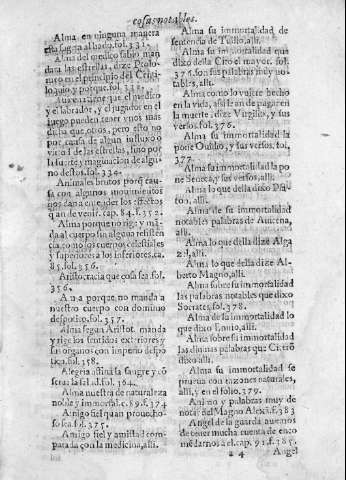 cosas notables.
Alma en ninguna manera
esta sugeta al hado. fol. 331.
Alma del medico sabio man
da a las estrellas, dize Ptolo-
meo en el principio del
loquio y porque. fol. 338.
el medico
y el labrador, y el jugador en el
juego pueden tener vnos mas
dicha que otros, pero esto no
por causa de algun influxo o
de las estrellas, sino por
la suerte, y maginacion de algu-
no destos. fol. 334.
Animales brutos porq cau-
sa con algunos mouimientos
nos dan a entender los effectos
q an de venir. cap. 84. f. 352.
Alma porque no rige y mã-
da al cuerpo sin alguna resistẽ-
cia como los cuerpos celestiales
y superiores a los inferiores. ca.
85. fol. 356.
Aristocracia que cosa sea. fol.
356.
porque no manda a
nuestro cuerpo con dominio
despotico. fol. 357.
Alma segun Aristot. manda
y rige los sentidos exteriores y
sus organos con imperio despo-
tico. fol. 358.
Alegria assina la sangre y cõ
serua la salud. fol. 364.
Alma nuestra de naturaleza
noble y immortal. c. 89. f. 374
Amigo fiel quan prouecho-
so sea. fol. 375.
Amigo fiel y amistad com-
parada con la medicina, alli.
Alma su immortalidad de
sentencia de Tulio, alli.
Alma su immortalidad que
della dixo Ciro el mayor. fol.
376. son sus palabras muy no-
tables, alli.
Alma como lo vuiere hecho
en la vida, assi le an de pagar en
la muerte, dize Virgilio, y sus
versos. fol. 376.
Alma su immortalidad la
pone Ouidio, y sus versos. fol.
377.
Alma su immortalidad la po
ne Seneca, y sus versos, alli.
Alma lo que della dixo Pla-
ton, alli.
Alma de su immortalidad
notables palabras de Auicena,
alli.
Alma lo que della dize Alga
zel, alli.
Alma lo que della dize Al-
berto Magno, alli.
Alma sobre su immortalidad
las palabras notables que dixo
Socrates, fol. 378.
Alma de la immortalidad lo
que dixo Ennio, alli.
Alma sobre su immortalidad
las diuinas palabras que Cicerõ
dixo alli.
Alma su immortalidad se
prueua con razones naturales,
alli, y en el folio. 379.
Animo y palabras muy de
notar del Magno Alexã. f. 383
Angel de la guarda auemos
de tener mucha cuenta de enco
mendarnos a el. cap. 91. f. 385.
Angel